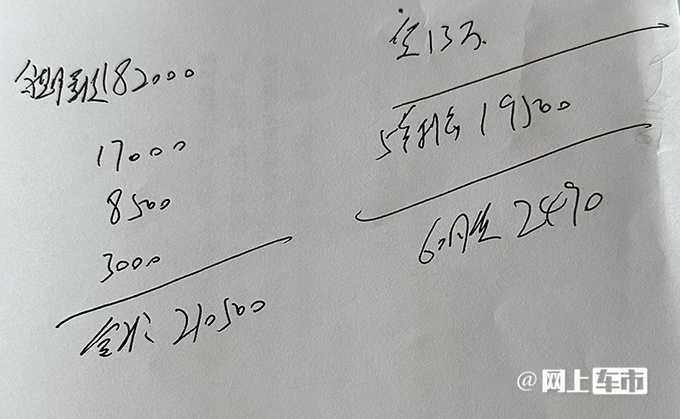 182000
17000
8500
3000
210500
13万
5年利息 19500
6 2490
@网上车市